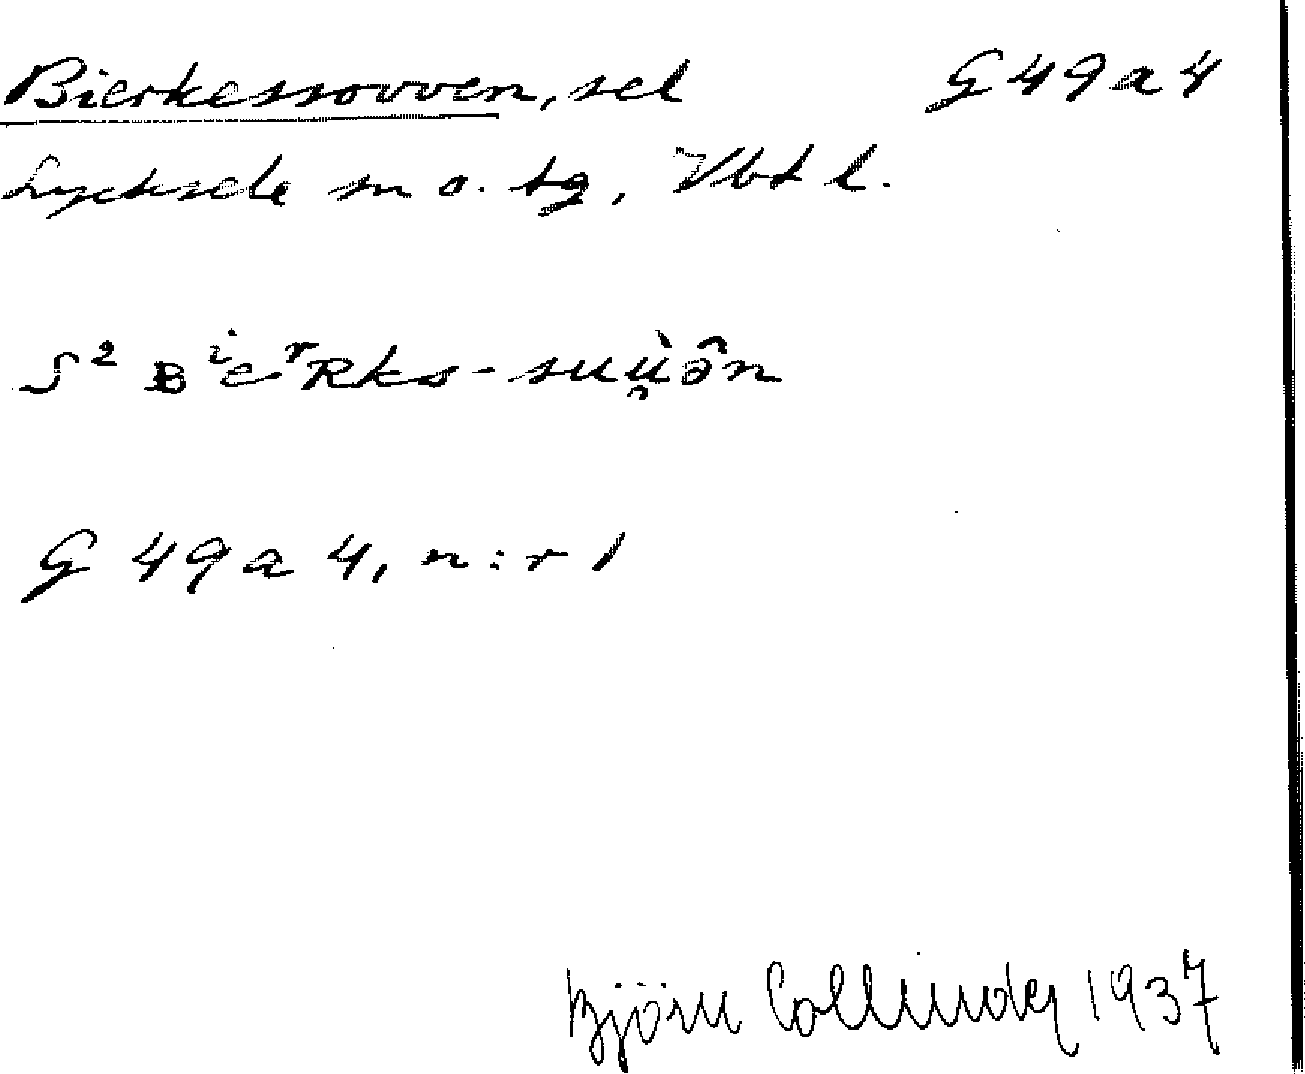 Bierkessovven, sel G 49 a 4
Lycksele sn o. tg, Vbt l.
S² BⁱeʳRks-suù̯ə̑n
G 49 a 4, n:r 1
Björn Collinder 1937